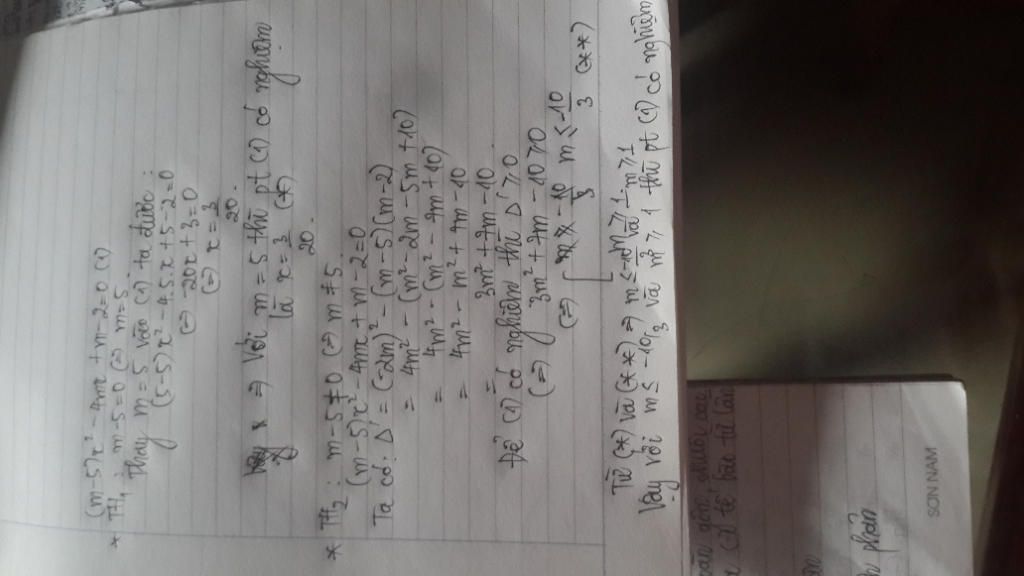 (m-5)x² - 4mx + m-2=0 (1)
* TH₁ : m-5=0 (=) m=5
Thay m=5 vào (1) ta được :
(5-5)x² - 4.5.x + 5-2=0
(=) -20x + 3=0
(=) x = 3/20.
=> Với m = 5 thì pt (1) có nghiệm
là x = 3/20. (*)
* TH₂ : m-5≠0 (=) m≠5.
(m-5)x² - 4mx + m-2=0
Ta có: Δ' = (-2m)² - (m-5)(m-2)
= 4m² - (m² - 2m - 5m + 10)
= 4m² - (m² - 7m + 10)
= 4m² - m² + 7m - 10
= 3m² + 7m - 10
Để (1) có nghiệm thì Δ' ≥ 0
(=) 3m² + 7m - 10 ≥ 0
(=) [ m ≤ -10/3 (**)
m ≥ 1
Từ (*) và (**) => m ≤ -10/3 và m ≥ 1
Vậy với m ≤ -10/3 và m ≥ 1 thì pt (1) có nghiệm
SƠN NAM